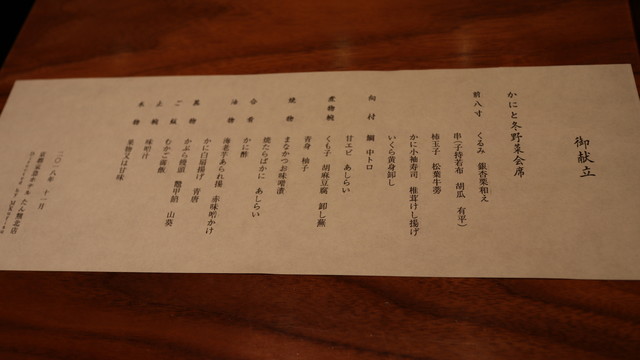 御献立
かにと冬野菜会席
前八寸 くるみ 銀杏果和え
串(子持若布 胡瓜 有平)
柿玉子 松葉牛蒡
かに小袖寿司 椎茸けし揚げ
いくら黄身卸し
向付 鯛 中トロ
甘エビ あしらい
煮物椀 くも子 胡麻豆腐 卸し蕪
青身 柚子
焼物 まなかつお味噌漬
焼たらばかに あしらい
合肴 かに酢
油物 海老芋あられ揚 赤味噌かけ
かに白扇揚げ 青唐
蒸物 かぶら饅頭 鼈甲餡 山葵
ご飯 むかご御飯
止椀 味噌汁
水物 果物又は甘味
二〇一八年 十一月
京都東急ホテル たん熊北店
Directed by M.Kurisu